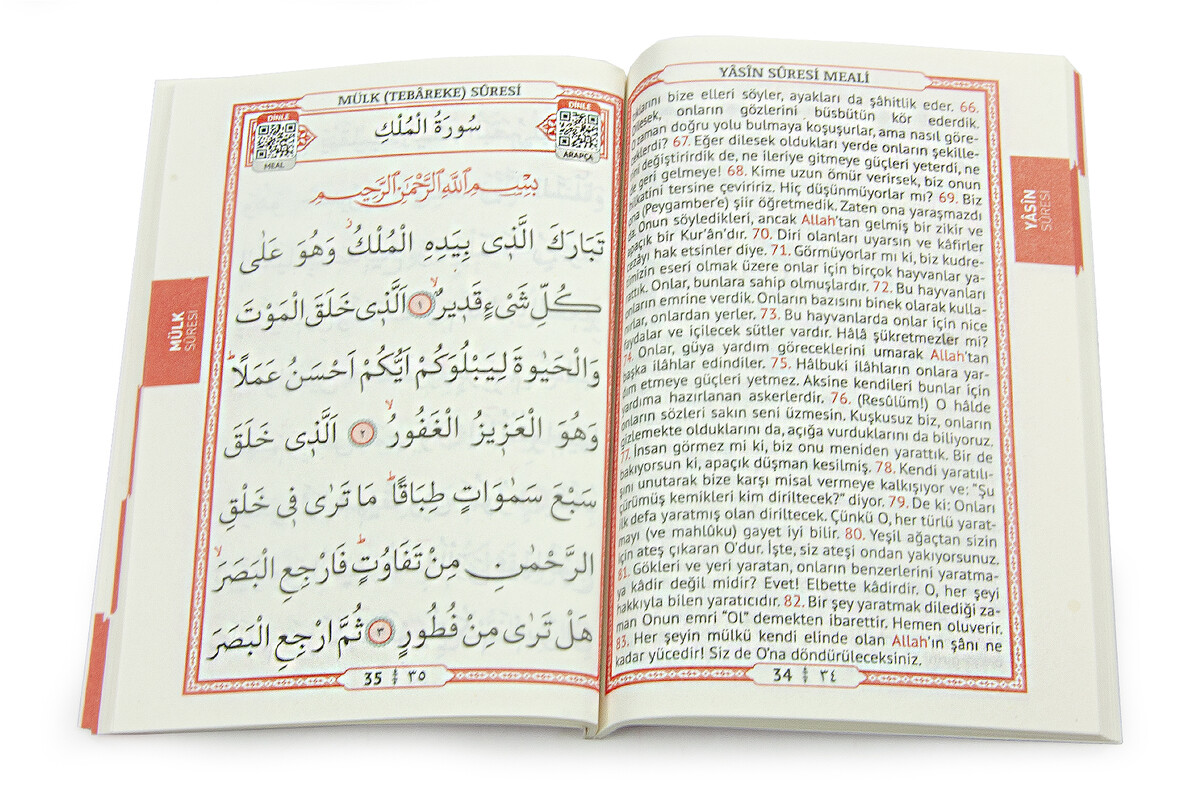 YÂSÎN SÛRESİ MEALİ
klarını bize elleri söyler, ayakları da şâhitlik eder. 66.
dilesek, onların gözlerini büsbütün kör ederdik.
zaman doğru yolu bulmaya koşuşurlar, ama nasıl göre-
ceklerdi? 67. Eğer dilesek oldukları yerde onların şekille-
rini değiştirirdik de, ne ileriye gitmeye güçleri yeterdi, ne
de geri gelmeye! 68. Kime uzun ömür verirsek, biz onun
hilkatini tersine çeviririz. Hiç düşünmüyorlar mı? 69. Biz
ona (Peygamber'e) şiir öğretmedik. Zaten ona yaraşmazdı
da. Onun söyledikleri, ancak Allah'tan gelmiş bir zikir ve
apaçık bir Kur'ân'dır. 70. Diri olanları uyarsın ve kâfirler
cezâyı hak etsinler diye. 71. Görmüyorlar mı ki, biz kudre-
timizin eseri olmak üzere onlar için birçok hayvanlar ya-
rattık. Onlar, bunlara sahip olmuşlardır. 72. Bu hayvanları
onların emrine verdik. Onların bazısını binek olarak kulla-
nırlar, onlardan yerler. 73. Bu hayvanlarda onlar için nice
faydalar ve içilecek sütler vardır. Hâlâ şükretmezler mi?
74. Onlar, güya yardım göreceklerini umarak Allah'tan
başka ilâhlar edindiler. 75. Hâlbuki ilâhların onlara yar-
dım etmeye güçleri yetmez. Aksine kendileri bunlar için
yardıma hazırlanan askerlerdir. 76. (Resûlüm!) O hâlde
onların sözleri sakın seni üzmesin. Kuşkusuz biz, onların
gizlemekte olduklarını da, açığa vurduklarını da biliyoruz.
77. İnsan görmez mi ki, biz onu meniden yarattık. Bir de
bakıyorsun ki, apaçık düşman kesilmiş. 78. Kendi yaratılı-
şını unutarak bize karşı misal vermeye kalkışıyor ve: "Şu
çürümüş kemikleri kim diriltecek?" diyor. 79. De ki: Onları
ilk defa yaratmış olan diriltecek. Çünkü O, her türlü yarat-
mayı (ve mahlûku) gayet iyi bilir. 80. Yeşil ağaçtan sizin
için ateş çıkaran O'dur. İşte, siz ateşi ondan yakıyorsunuz.
81. Gökleri ve yeri yaratan, onların benzerlerini yaratma-
ya kâdir değil midir? Evet! Elbette kâdirdir. O, her şeyi
hakkıyla bilen yaratıcıdır. 82. Bir şey yaratmak dilediği za-
man Onun emri "Ol" demekten ibarettir. Hemen oluverir.
83. Her şeyin mülkü kendi elinde olan Allah'ın şânı ne
kadar yücedir! Siz de O'na döndürüleceksiniz.
34 ٣٤
YÂSÎN
SÛRESİ
MÜLK (TEBÂREKE) SÛRESİ
DİNLE
MEAL
سُورَةُ الْمُلْكِ
DİNLE
ARAPÇA
بِسْمِ اللّٰهِ الرَّحْمٰنِ الرَّحِيمِ
تَبَارَكَ الَّذٖى بِيَدِهِ الْمُلْكُۘ وَهُوَ عَلٰى
كُلِّ شَىْءٍ قَدٖيرٌۙ ﴿١﴾ اَلَّذٖى خَلَقَ الْمَوْتَ
وَالْحَيٰوةَ لِيَبْلُوَكُمْ اَيُّكُمْ اَحْسَنُ عَمَلًاؕ
وَهُوَ الْعَزٖيزُ الْغَفُورُۙ ﴿٢﴾ اَلَّذٖى خَلَقَ
سَبْعَ سَمٰوَاتٍ طِبَاقًاؕ مَا تَرٰى فٖى خَلْقِ
الرَّحْمٰنِ مِنْ تَفَاوُتٍؕ فَارْجِعِ الْبَصَرَۙ
هَلْ تَرٰى مِنْ فُطُورٍ ﴿٣﴾ ثُمَّ ارْجِعِ الْبَصَرَ
35 ٣٥
MÜLK
SÛRESİ